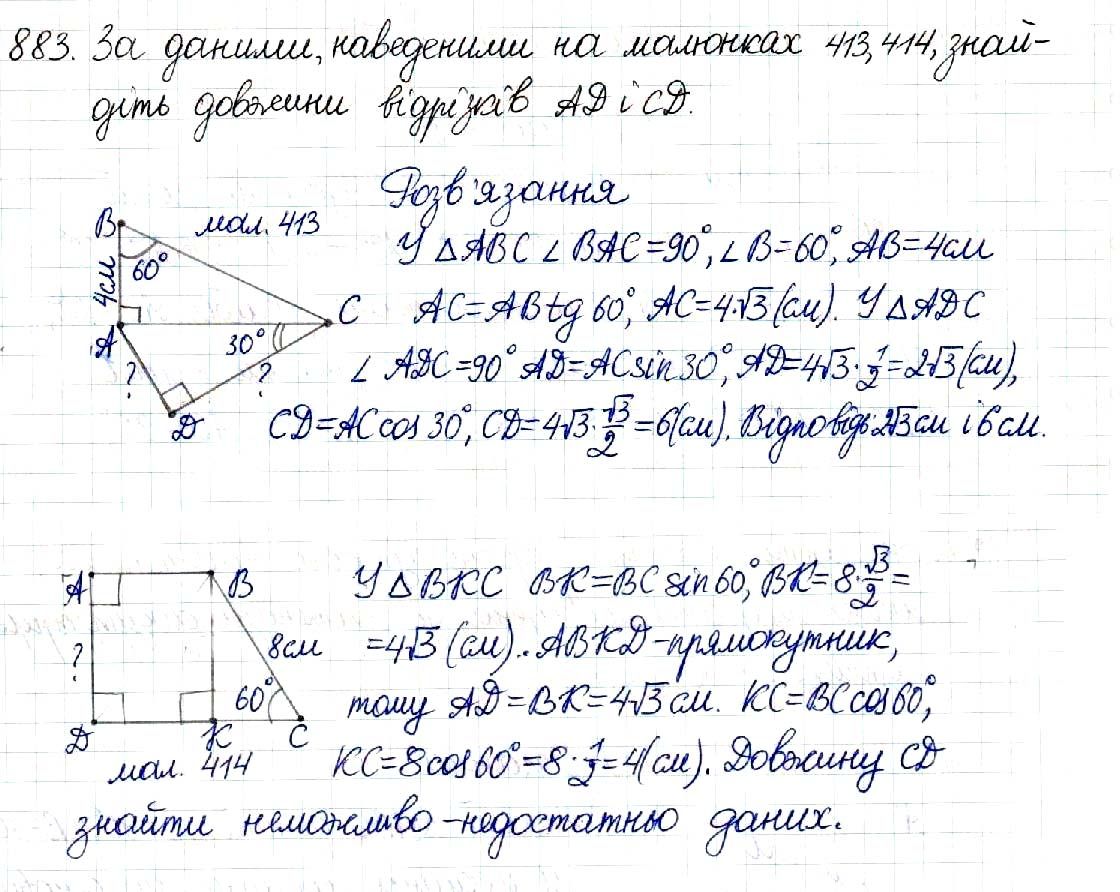 883. За даними, наведеними на малюнках 413, 414, знай-
діть довжини відрізків AD і CD.
Розв'язання
мал. 413
B
60°
4см
A
C
30°
?
?
D
У △ABC ∠BAC=90°, ∠B=60°, AB=4см
AC=AB tg 60°, AC=4·√3 (см). У △ADC
∠ADC=90° AD=AC sin 30°, AD=4√3·1/2=2√3 (см),
CD=AC cos 30°, CD=4√3·√3/2=6(см). Відповідь: 2√3 см і 6 см.
A
B
?
8см
60°
D
K
C
мал. 414
У △BKC BK=BC sin 60°, BK=8·√3/2=
=4√3 (см). ABKD-прямокутник,
тому AD=BK=4√3 см. KC=BC cos 60°,
KC=8cos 60°=8·1/2=4(см). Довжину CD
знайти неможливо-недостатньо даних.